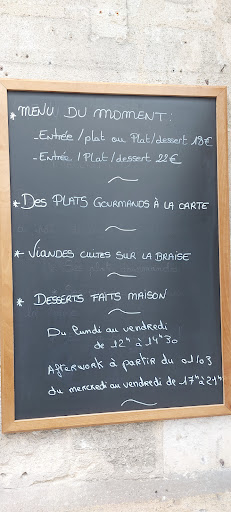 * MENU DU MOMENT :
- Entrée / plat ou Plat / dessert 18€
- Entrée / Plat / dessert 22€
* DES PLATS GOURMANDS À LA CARTE
* VIANDES CUITES SUR LA BRAISE
* DESSERTS FAITS MAISON
Du lundi au vendredi
de 12h à 14h30
Afterwork à partir du 01/03
du mercredi au vendredi de 17h à 21h